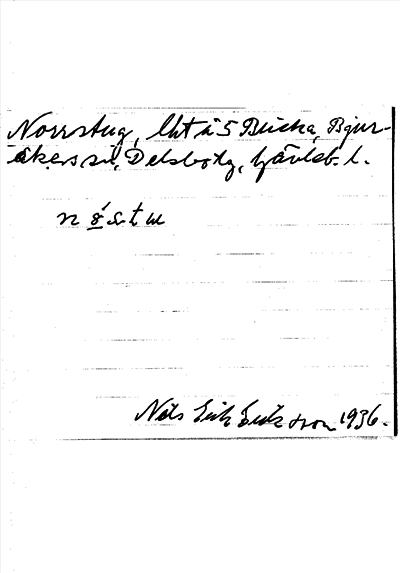 Norrstug, lht å 5 Bricka, Bjur-
åkers sn, Delsbo tg, Gävleb. l.
n ǫ́ s t u
Nils Erik Eriksson 1936.